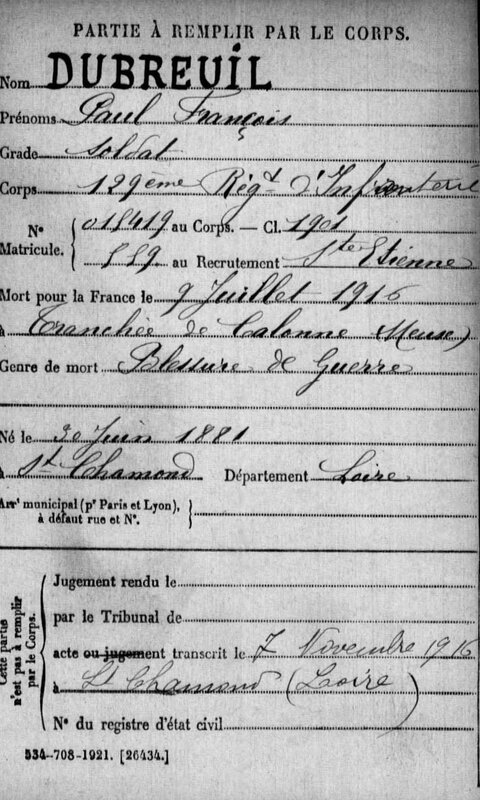 PARTIE À REMPLIR PAR LE CORPS.
Nom DUBREUIL
Prénoms Paul François
Grade Soldat
Corps 129ème Régt d'Infanterie
N° Matricule. { 018419 au Corps. — Cl. 1901
889 au Recrutement St Etienne
Mort pour la France le 9 Juillet 1916
à Tranchée de Calonne (Meuse)
Genre de mort Blessure de Guerre
Né le 30 Juin 1881
à St Chamond Département Loire
Arrt municipal (pr Paris et Lyon), à défaut rue et N°. }
Cette partie n'est pas à remplir par le Corps.
Jugement rendu le
par le Tribunal de
acte ou jugement transcrit le 7 Novembre 1916
à St Chamond (Loire)
N° du registre d'état civil
534-708-1921. [26434.]